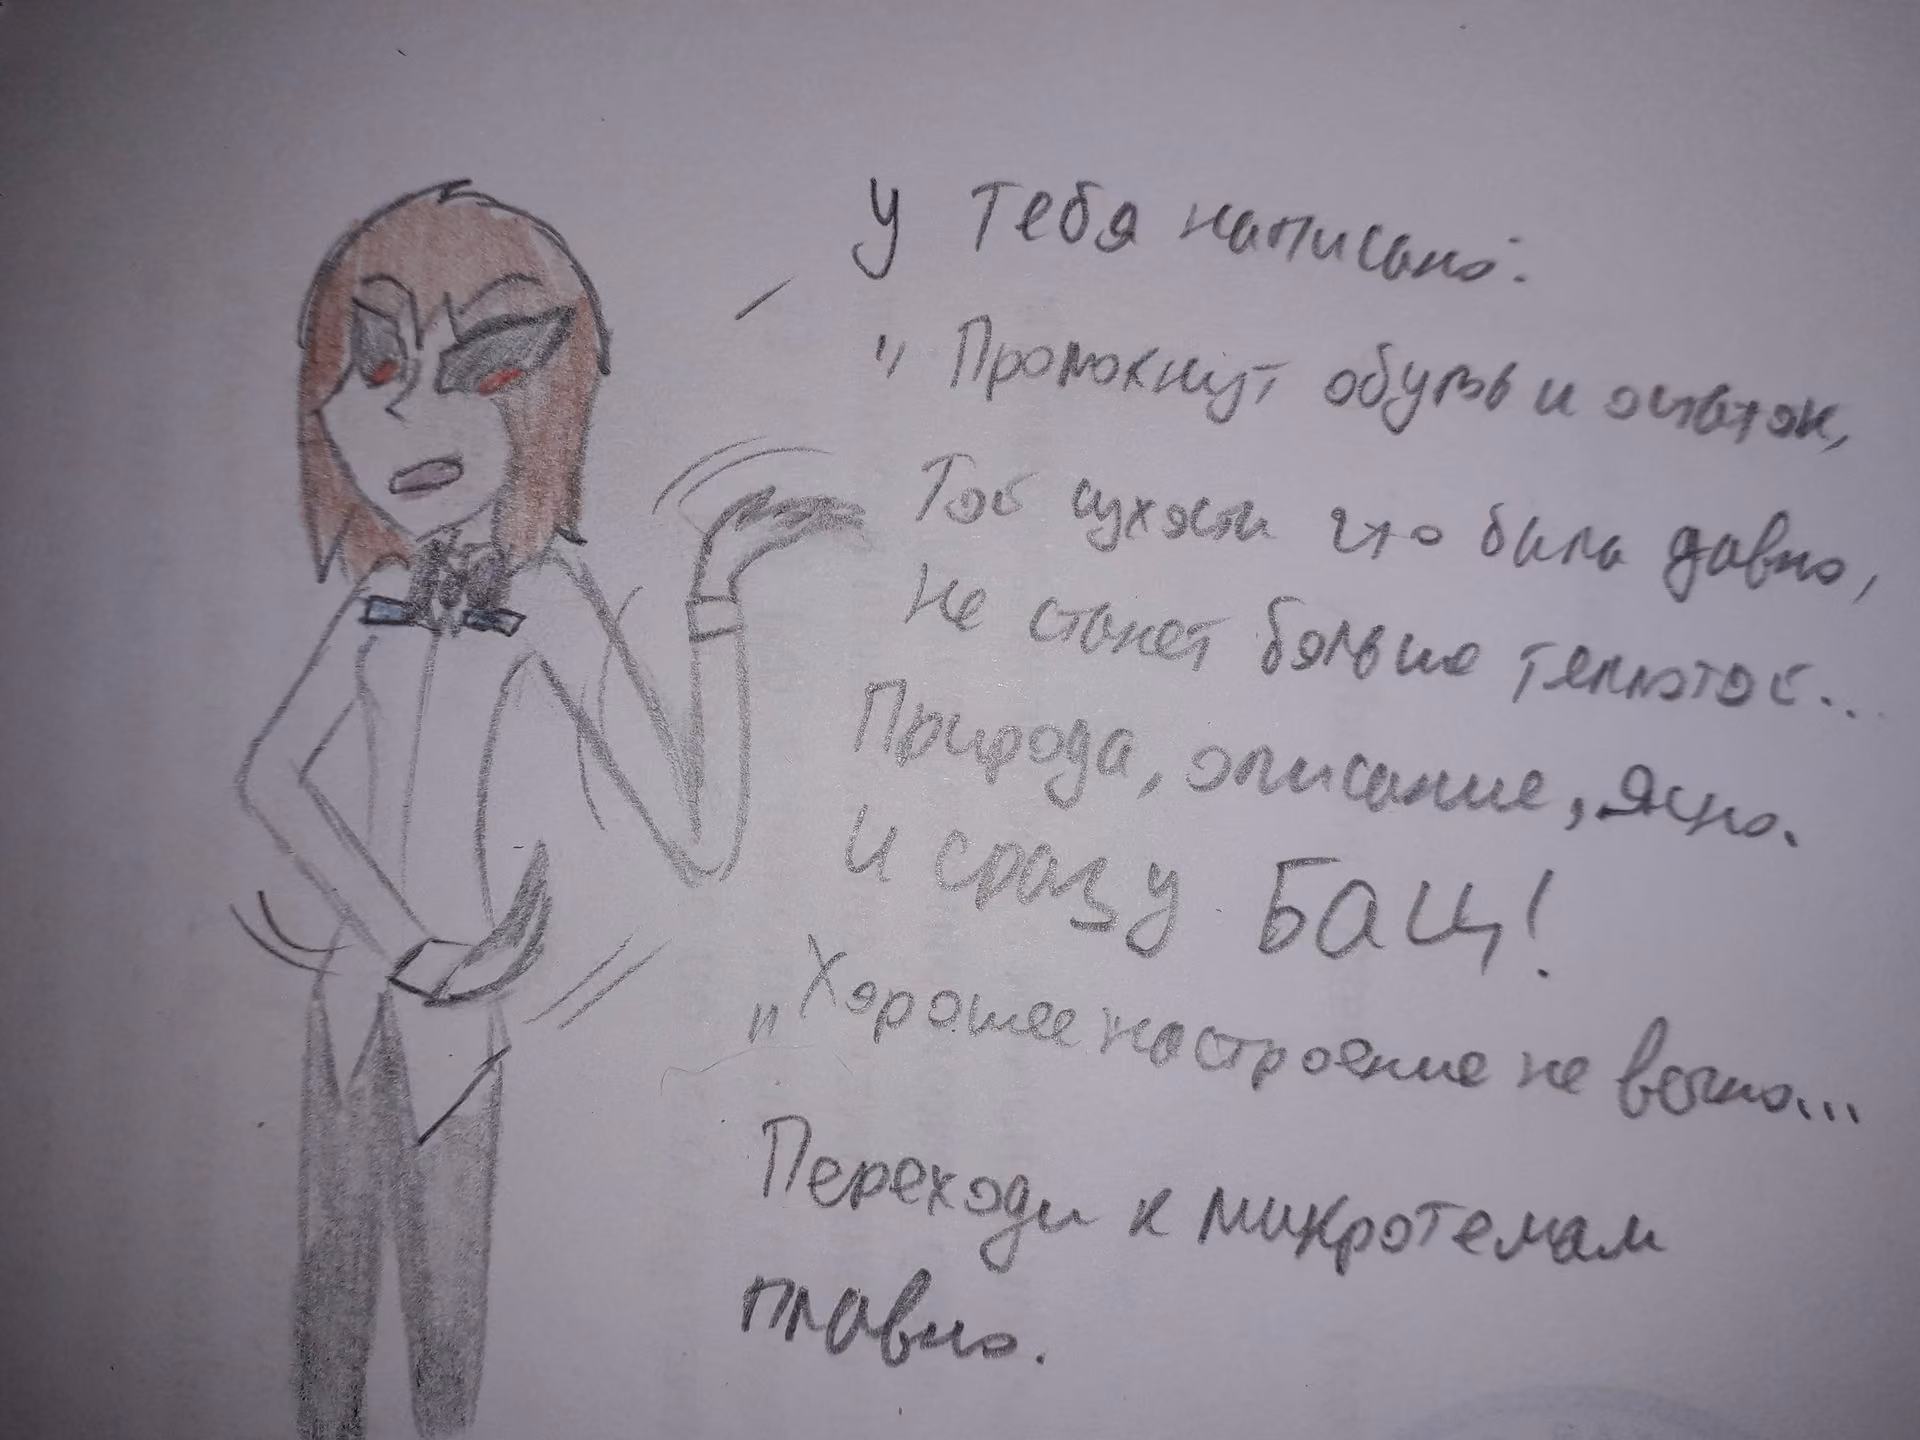 У тебя написано:
"Промокнут обувь и остаток,
Той сухости что была давно,
Не станет больше теплотой...
Природа, описание, ясно.
И сразу БАЦ!
"Хорошее настроение не вечно...
Переходи к микротемам
плавно.